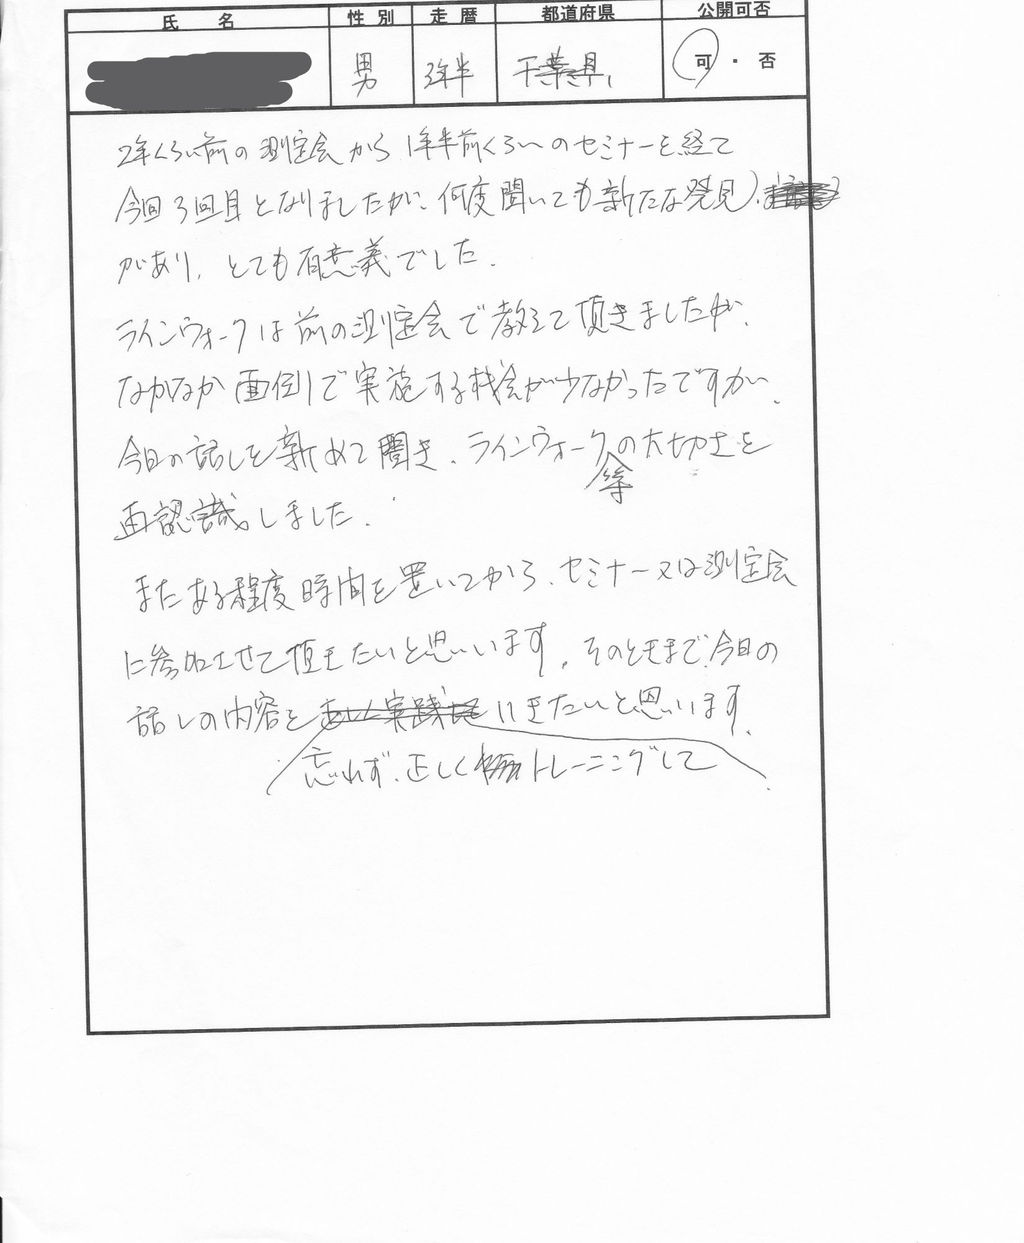 氏 名 性別 走暦 都道府県 公開可否
男 3年半 千葉県 可・否
2年くらい前の測定会から1年半前くらいのセミナーを経て
今回3回目となりましたが、何度聞いても新たな発見
があり、とても有意義でした。
ラインウォークは前の測定会で教えて頂きましたが、
なかなか面倒で実施する機会が少なかったですが、
今日の話しを新めて聞き、ラインウォーク等の大切さを
再認識しました。
またある程度時間を置いてから、セミナー又は測定会
に参加させて頂きたいと思います。そのときまで、今日の
話しの内容を忘れず、正しくトレーニングしていきたいと思います。